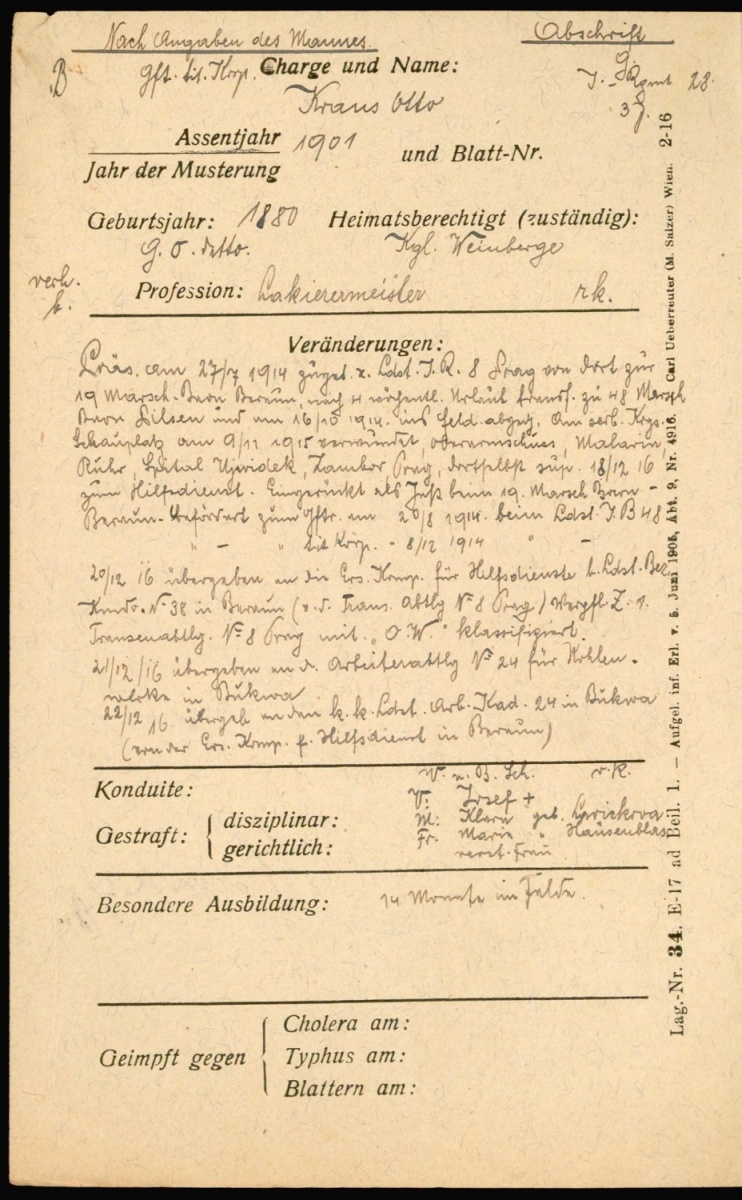 Nach Angaben des Mannes.
Abschrift
B
Gft. tit. Krp.
Charge und Name:
J. Rgmt 28.
Kraus Otto
Assentjahr
Jahr der Musterung
1901
und Blatt-Nr.
Geburtsjahr: 1880
Heimatsberechtigt (zuständig):
G. O. detto.
Kgl. Weinberge
verh.
Profession: Lakierermeister
rk.
Veränderungen:
Präs. am 27/7 1914 zuget. z. Ldst. I. R. 8 Prag von dort zur
19 Marsch. Baon Beraun, nach 4 wöchentl. Urlaub transf. zu 48 Marsch
Baon Pilsen und am 16/10 1914. ins Feld abgeg. Am serb. Krgs.
Schauplatz am 9/11 1915 verwundet, Oberarmschuss, Malaria,
Ruhr, Spital Ujvidek, Zombor Prag, dortselbst sup. 18/12 16
zum Hilfsdienst. Eingerückt als Inft. beim 19. Marsch Baon -
Beraun - befördert zum Gftr. am 20/8 1914. beim Ldst. I. B 48
" — " tit Krp. " 8/12 1914 " —
20/12 16 übergeben an die Ers. Komp. für Hilfsdienste b. Ldst. Bez.
Kmdo. No 38 in Beraun (v. d. Trans. Abtlg No 8 Prag) Verpfl. Z. 1.
Transenabtlg. No 8 Prag mit "O. W." klassifiziert.
21/12/16 übergeben an d. Arbeiterabtlg No 24 für Kohlen-
werke in Bukwa
22/12 16 übergeb. an den k. k. Ldst. Arb. Kad. 24 in Bukwa
(von der Ers. Komp. f. Hilfsdienst in Beraun)
V. u. B. Sch. rk.
Konduite:
V: Josef +
Gestraft:
disziplinar:
M: geb.
gerichtlich:
Fr. Marie " Hausenblas
Besondere Ausbildung:
14 Monate im Felde.
Geimpft gegen
Cholera am:
Typhus am:
Blattern am:
Lag.-Nr. 34. E-17 ad Beil. 1. — Aufgel. inf. Erl. v. 5. Juni 1905, Abt. 9, Nr. 4916. Carl Ueberreuter (M. Salzer) Wien. 2-16